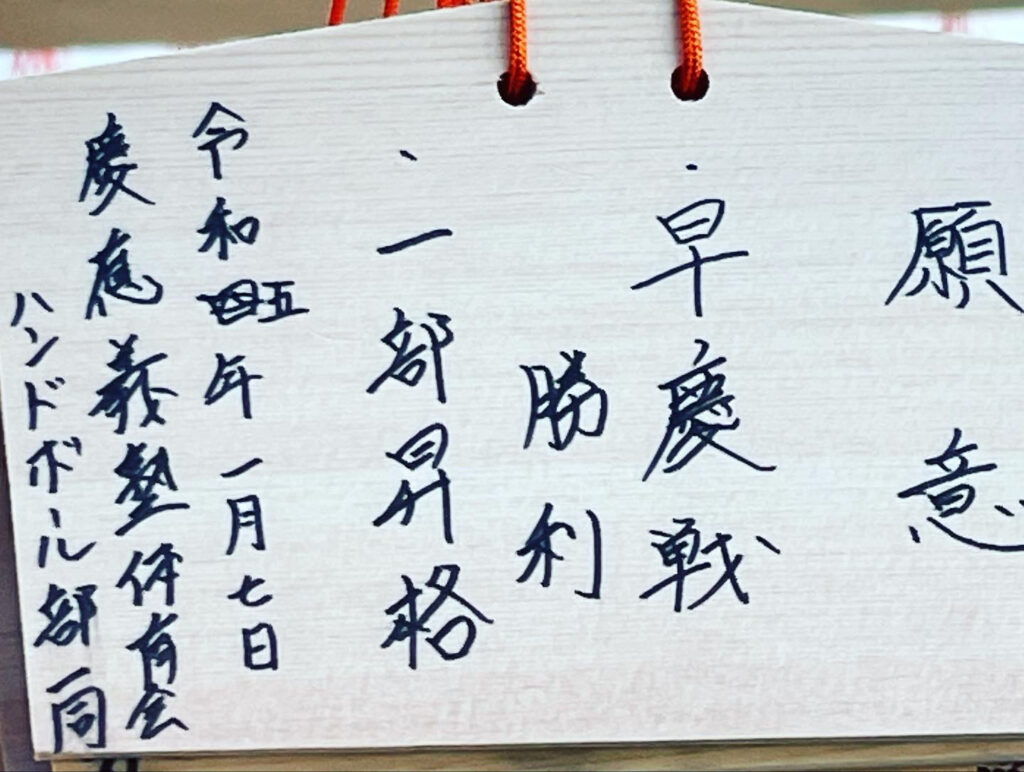 願意
・早慶戦
勝利
・一部昇格
令和五年一月七日
慶應義塾体育会
ハンドボール部一同